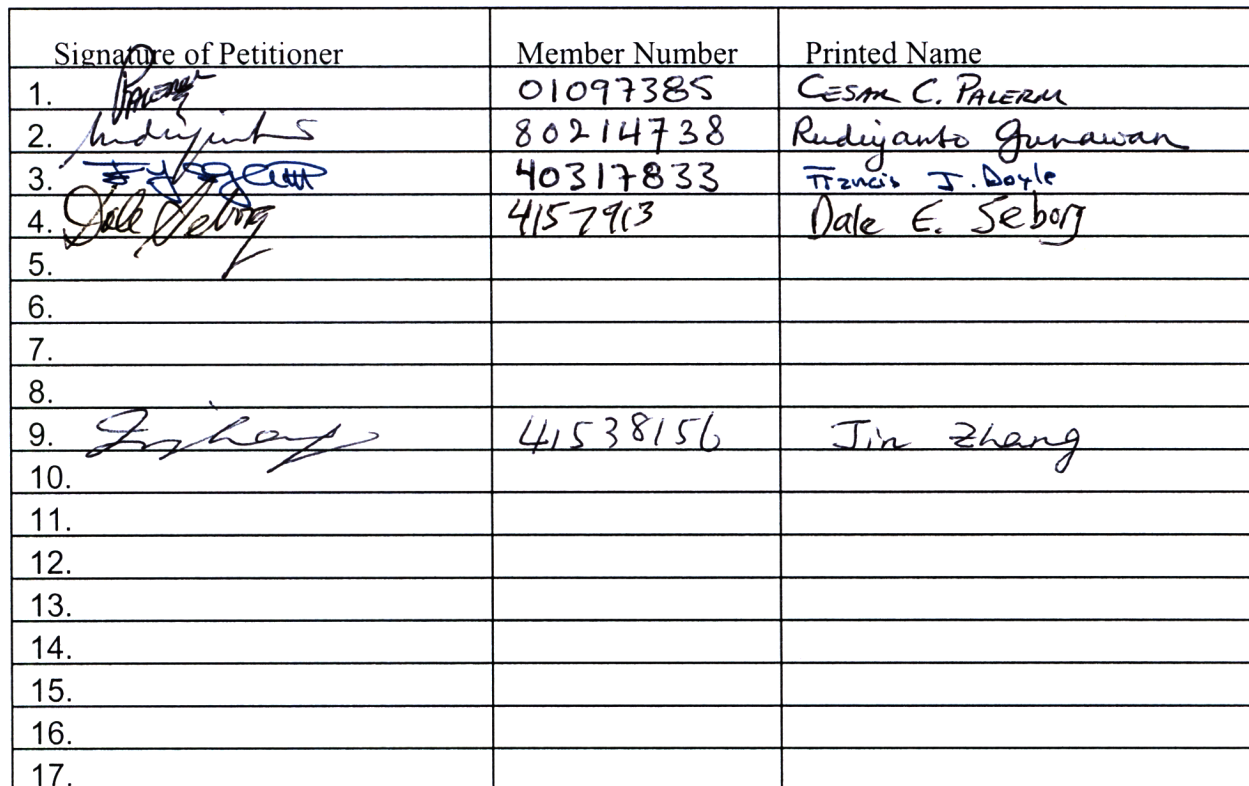 Signature of Petitioner Member Number Printed Name
1. Palerm 01097385 CESAR C. PALERM
2. 80214738 Rudiyanto Gunawan
3. 40317833 Francis J. Doyle
4. Dale Seborg 4157913 Dale E. Seborg
5.
6.
7.
8.
9. 41538156 Jin Zhang
10.
11.
12.
13.
14.
15.
16.
17.